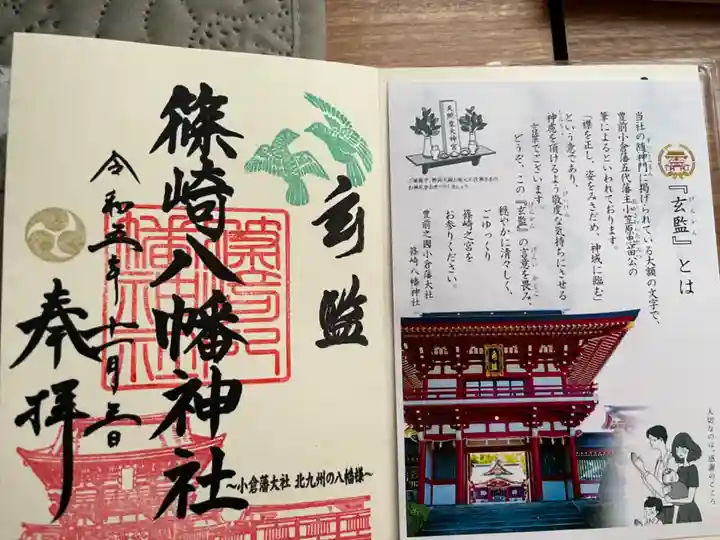 玄監
篠崎八幡神社
令和五年十一月三日
奉拝
〜小倉藩大社 北九州の八幡様〜
『玄監』とは
げんかん
当社の随神門に掲げられている大額の文字で、
豊前小倉藩五代藩主小笠原忠苗公の
筆によるといわれております。
「襟を正し、姿をみさだめ、神域に臨む」
という意であり、
神慮を頂けるよう敬虔な気持ちにさせる
言葉でございます。
どうぞ、この『玄監』の言意を畏み、
穏やかに清々しく、
ごゆっくり
篠崎之宮を
お参りください。
豊前之國小倉藩大社
篠崎八幡神社
天照皇大神宮
玄監
大切なのは、感謝のこころ